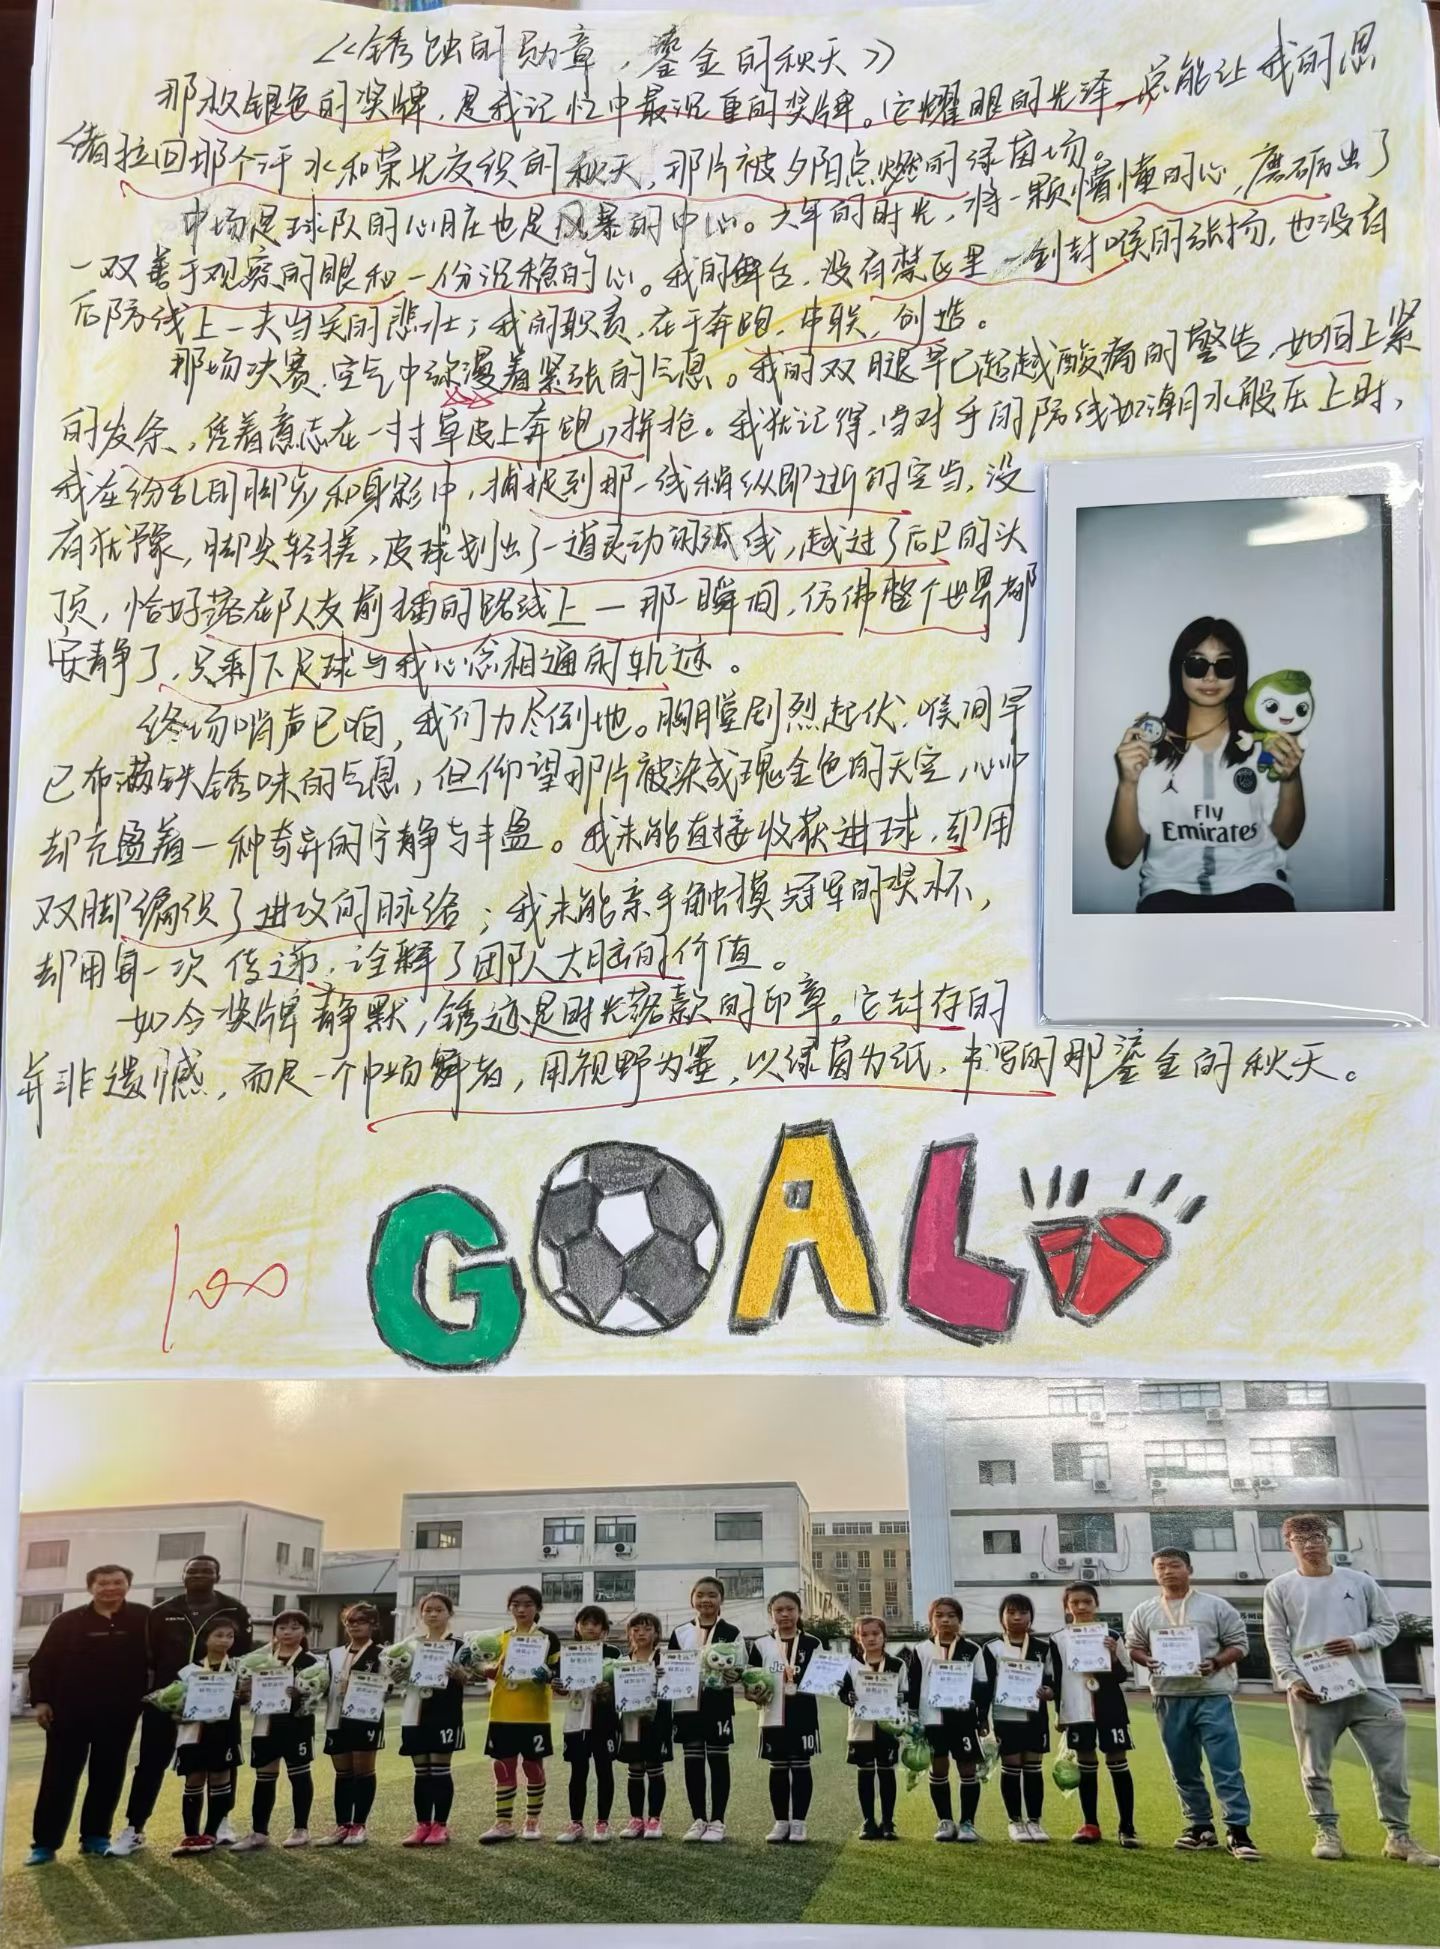 《锈蚀的勋章，鎏金的秋天》
那枚银色的奖牌，是我记忆中最沉重的奖牌。它耀眼的光泽，总能让我的思
绪拉回那个汗水和荣光交织的秋天，那片被夕阳点燃的绿茵场。
中场是球队的心脏也是风暴的中心。六年的时光，将一颗懵懂的心，磨砺出了
一双善于观察的眼和一份沉稳的心。我的舞台，没有禁区里一剑封喉的张扬，也没有
后防线上一夫当关的悲壮；我的职责，在于奔跑，串联，创造。
那场决赛，空气中弥漫着紧张的气息。我的双腿早已超越酸痛的警告，如同上紧
的发条，凭着意志在一寸寸草皮上奔跑，拼抢。我犹记得，当对手的防线如潮水般压上时，
我在纷乱的脚步和身影中，捕捉到那一线稍纵即逝的空当，没
有犹豫，脚尖轻搓，皮球划出了一道灵动的弧线，越过了后卫的头
顶，恰好落在队友前插的路线上—那一瞬间，仿佛整个世界都
安静了，只剩下足球与我心念相通的轨迹。
终场哨声已响，我们力尽倒地。胸膛剧烈起伏，喉间早
已布满铁锈味的气息，但仰望那片被染成瑰金色的天空，心中
却充盈着一种奇异的宁静与丰盈。我未能直接收获进球，却用
双脚编织了进攻的脉络；我未能亲手触摸冠军的奖杯，
却用每一次传递，诠释了团队大脑的价值。
如今奖牌静默，锈迹是时光落款的印章。它封存的
并非遗憾，而是一个中场舞者，用视野为墨，以绿茵为纸，书写的那鎏金的秋天。
Fly
Emirates
GOAL
100
6
5
9
12
2
8
4
14
Jeep
10
2
3
13